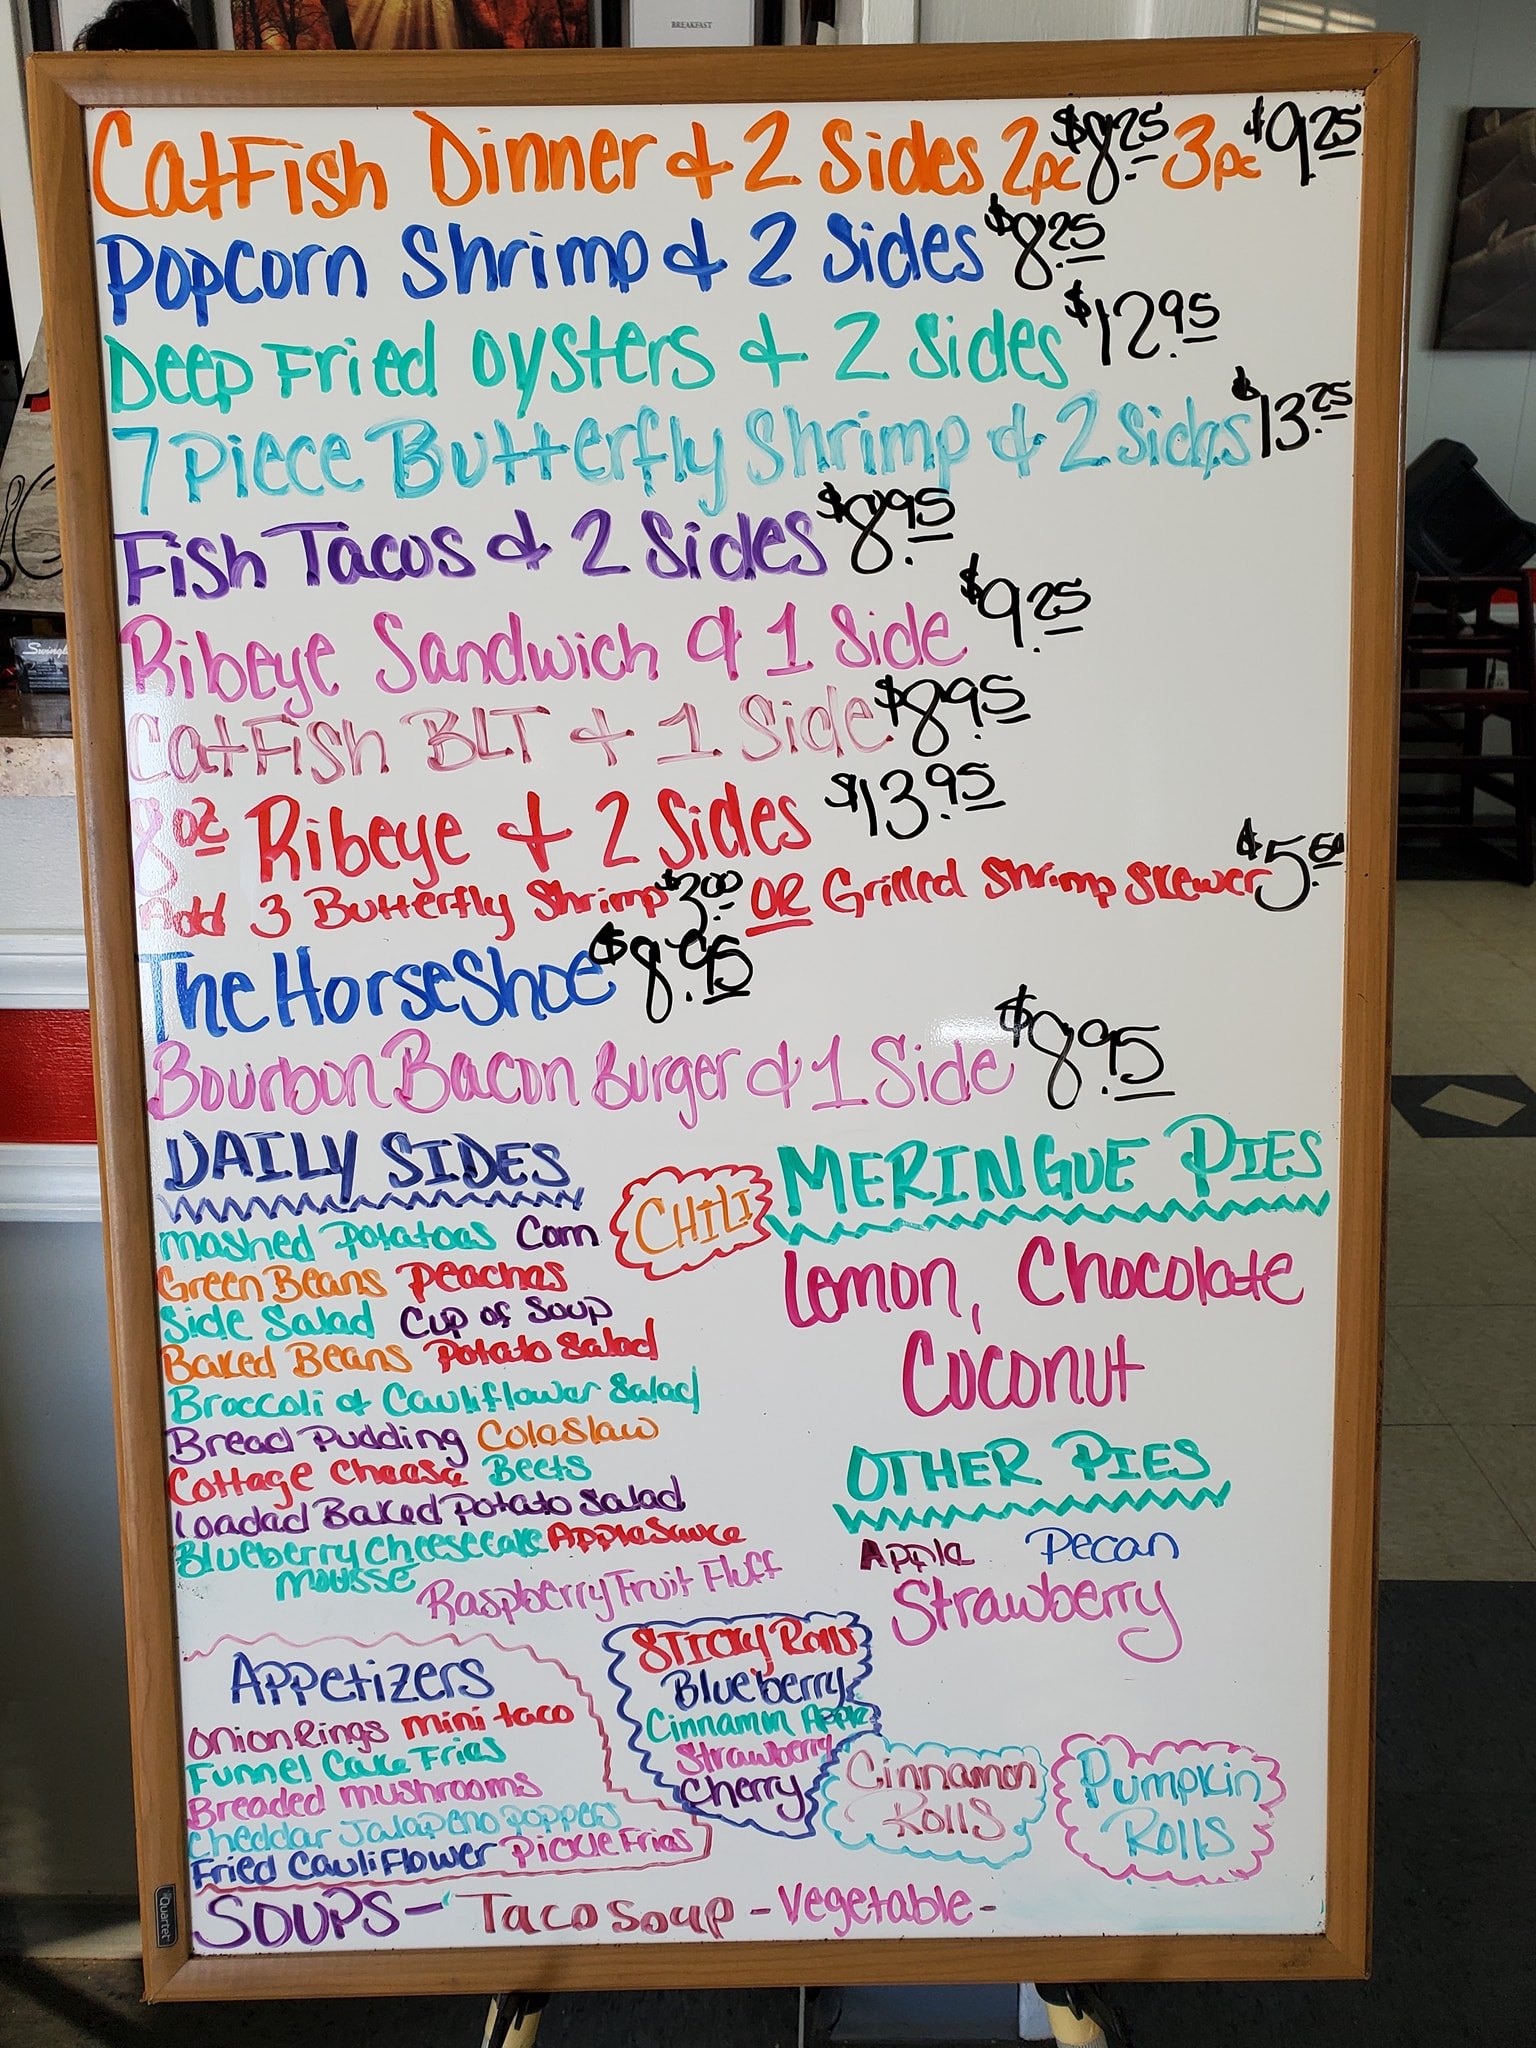 BREAKFAST
CatFish Dinner & 2 Sides 2pc $8.25 3pc $9.25
Popcorn Shrimp & 2 Sides $8.25
Deep Fried oysters & 2 Sides $12.95
7 Piece Butterfly Shrimp & 2 Sides $13.25
Fish Tacos & 2 Sides $8.95
Ribeye Sandwich & 1 Side $9.25
CatFish BLT & 1 Side $8.95
8oz Ribeye & 2 Sides $13.95
Add 3 Butterfly Shrimp $3.00 OR Grilled Shrimp Skewer $5.50
The HorseShoe $8.95
Bourbon Bacon Burger & 1 Side $8.95
DAILY SIDES
Mashed Potatoes Corn
Green Beans Peaches
Side Salad Cup of Soup
Baked Beans Potato Salad
Broccoli & Cauliflower Salad
Bread Pudding ColeSlaw
Cottage Cheese Beets
Loaded Baked Potato Salad
Blueberry Cheesecake AppleSauce
Mousse Raspberry Fruit Fluff
CHILI
MERINGUE PIES
Lemon, Chocolate
Coconut
OTHER PIES
Apple Pecan
Strawberry
Appetizers
Onion Rings mini taco
Funnel Cake Fries
Breaded mushrooms
Cheddar Jalapeno poppers
Fried CauliFlower Pickle Fries
Sticky Rolls
Blueberry
Cinnamin Apple
Strawberry
Cherry
Cinnamon
Rolls
Pumpkin
Rolls
SOUPS- Taco Soup - Vegetable -
Quartet